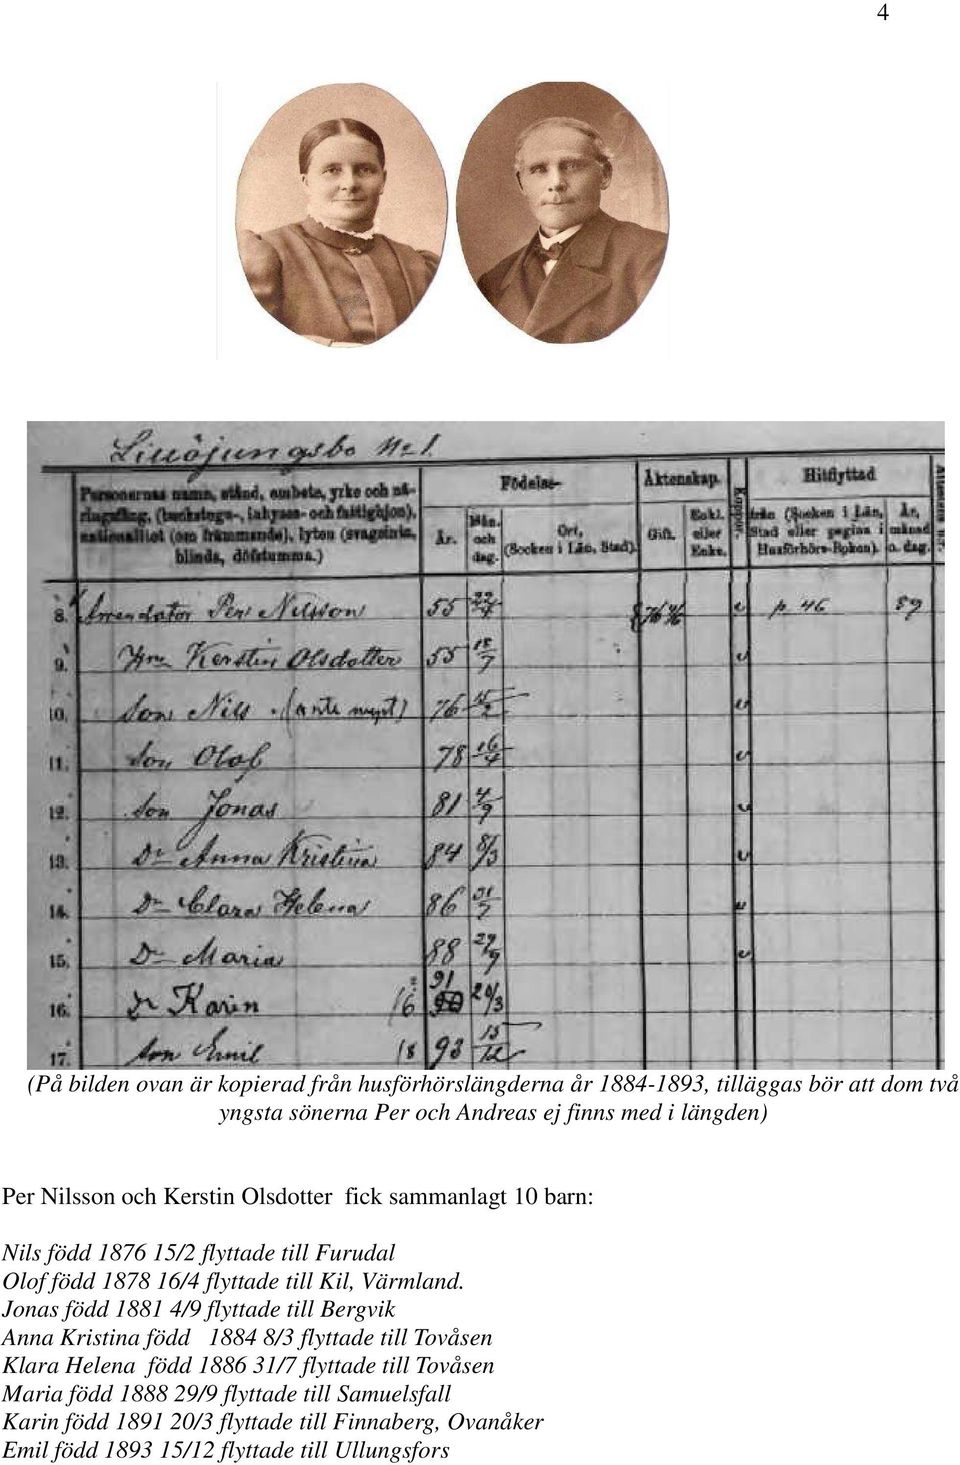 4
Liuöjungsbo No 1.
Personernas namn, stånd, embete, yrke och nä-
ringsfång, (backstugu-, inhyses- och fattighjon),
nationalitet (om främmande), lyten (svagsinta,
blinda, döfstumma.)
Födelse-
År.
Mån. och dag.
Ort, (Socken i Län, Stad).
Äktenskap.
Gift.
Enkl. eller Enka.
Koppor.
Hitflyttad
från (Socken i Län, Stad eller pagina i Husförhörs-Boken).
År, månad o. dag.
8. Arrendator Per Nilsson 55 22/4 76 v p. 46 89
9. Hu Kerstin Olsdotter 55 18/7 v
10. Son Nils (ante nupt) 76 15/2 v
11. Son Olof 78 16/4 v
12. Son Jonas 81 4/9 v
13. Dr Anna Kristina 84 8/3 v
14. Dr Clara Helena 86 31/7 v
15. Dr Maria 88 29/9 v
16. Dr Karin 16 91 20/3
17. Son Emil 18 93 15/12
(På bilden ovan är kopierad från husförhörslängderna år 1884-1893, tilläggas bör att dom två
yngsta sönerna Per och Andreas ej finns med i längden)
Per Nilsson och Kerstin Olsdotter fick sammanlagt 10 barn:
Nils född 1876 15/2 flyttade till Furudal
Olof född 1878 16/4 flyttade till Kil, Värmland.
Jonas född 1881 4/9 flyttade till Bergvik
Anna Kristina född 1884 8/3 flyttade till Tovåsen
Klara Helena född 1886 31/7 flyttade till Tovåsen
Maria född 1888 29/9 flyttade till Samuelsfall
Karin född 1891 20/3 flyttade till Finnaberg, Ovanåker
Emil född 1893 15/12 flyttade till Ullungsfors